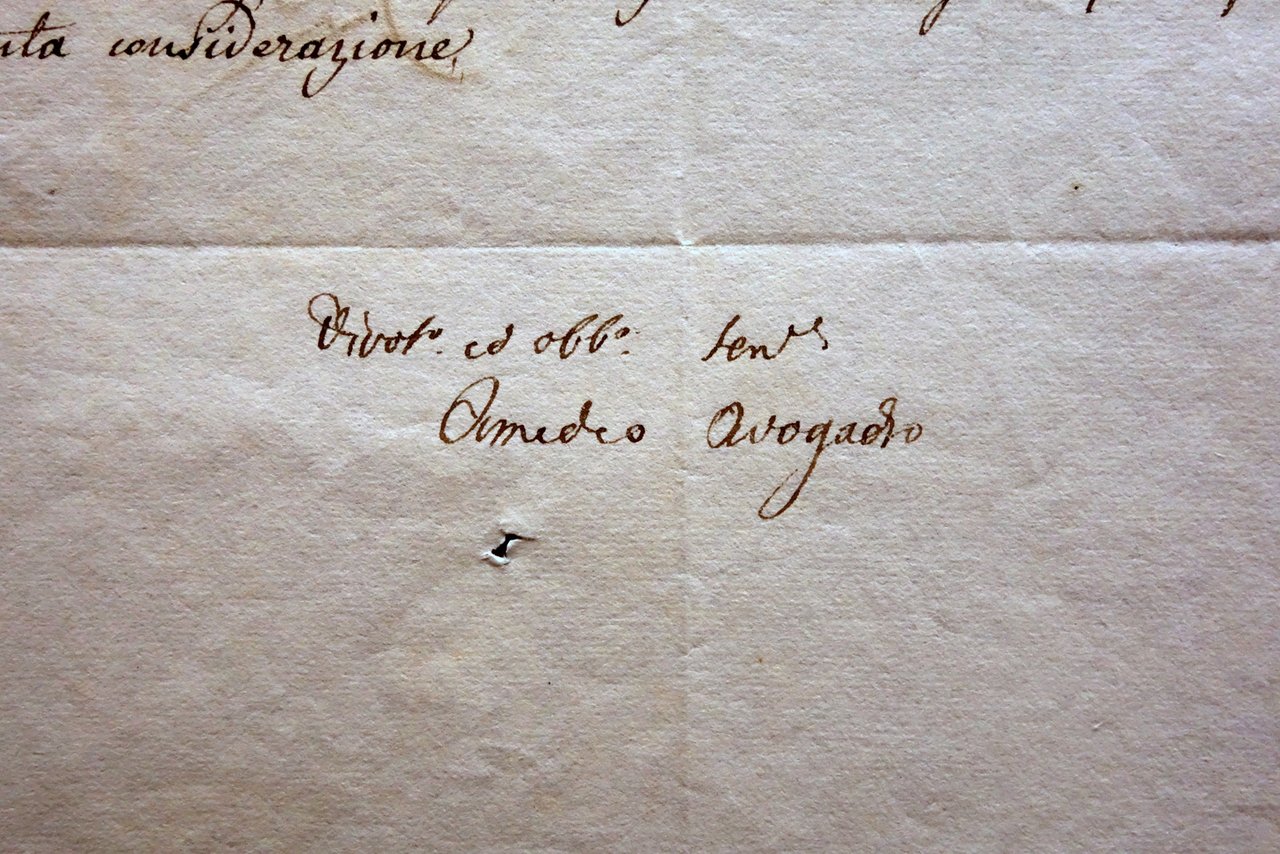 considerazione,
Divot.º ed obb.º Serv.re
Amedeo Avogadro